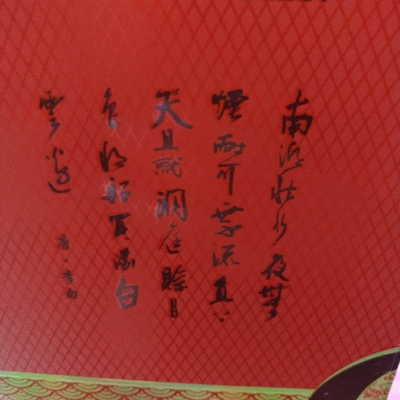 南湖秋水夜無
煙耐可乘流直上
天且就洞庭賒月
色將船買酒白
雲邊
唐·李白